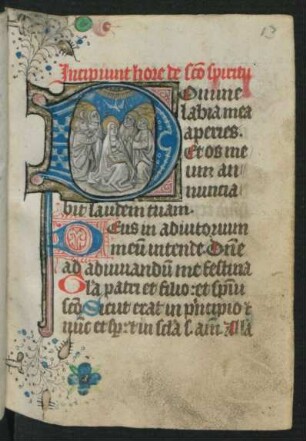 13
Incipiunt hore de sco spiritu
Domine
labia mea
aperies.
Et os me
um an
nuncia
bit laudem tuam.
Deus in adiutorium
meu intende Dne
ad adiuuandu me festina
Gla patri et filio: et spiui
sco Sicut erat in pncipio et
nuc et sp: et in scla s. am.